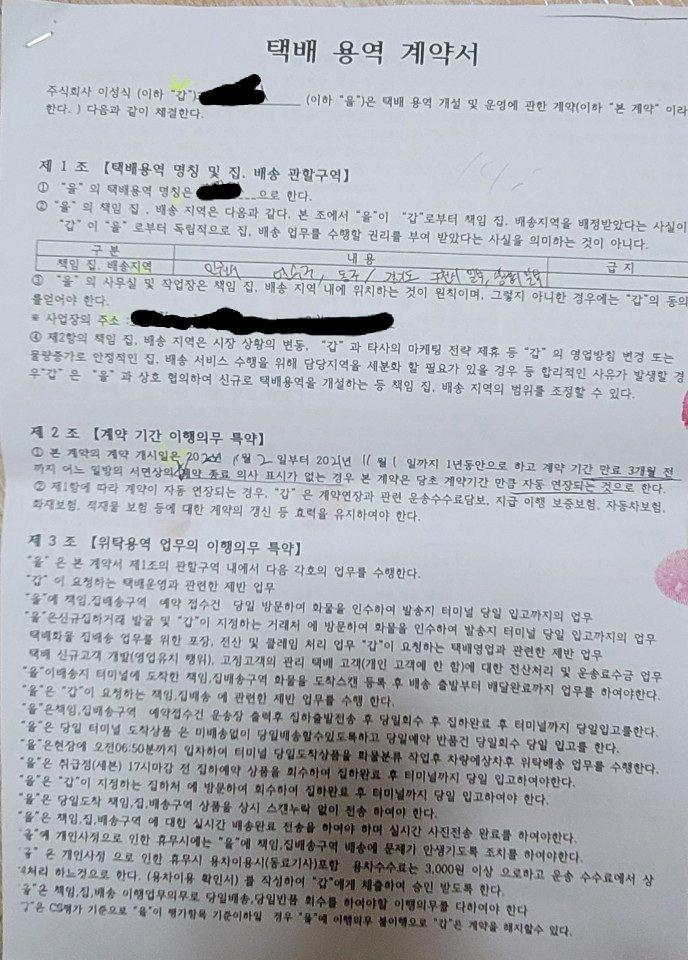 택배 용역 계약서
주식회사 이성식 (이하 "갑") (이하 "을")은 택배 용역 개설 및 운영에 관한 계약(이하 "본 계약" 이라
한다. ) 다음과 같이 체결한다.
제 1 조 【택배용역 명칭 및 집. 배송 관할구역】
① "을" 의 택배용역 명칭은 으로 한다.
② "을" 의 책임 집 . 배송 지역은 다음과 같다. 본 조에서 "을"이 "갑"로부터 책임 집. 배송지역을 배정받았다는 사실이
"갑" 이 "을" 로부터 독립적으로 집, 배송 업무를 수행할 권리를 부여 받았다는 사실을 의미하는 것이 아니다.
구 분 내 용 급 지
책임 집. 배송지역
③ "을" 의 사무실 및 작업장은 책임 집, 배송 지역 내에 위치하는 것이 원칙이며, 그렇지 아니한 경우에는 "갑"의 동의
를얻어야 한다.
* 사업장의 주소 :
④ 제2항의 책임 집, 배송 지역은 시장 상황의 변동, "갑" 과 타사의 마케팅 전략 제휴 등 "갑" 의 영업방침 변경 또는
물량증가로 안정적인 집, 배송 서비스 수행을 위해 담당지역을 세분화 할 필요가 있을 경우 등 합리적인 사유가 발생할 경
우"갑" 은 "을" 과 상호 협의하여 신규로 택배용역을 개설하는 등 책임 집, 배송 지역의 범위를 조정할 수 있다.
제 2 조 【계약 기간 이행의무 특약】
① 본 계약의 계약 개시일은 2020년 11월 2일부터 2021년 11월 1일까지 1년동안으로 하고 계약 기간 만료 3개월 전
까지 어느 일방의 서면상의 계약 종료 의사 표시가 없는 경우 본 계약은 당초 계약기간 만큼 자동 연장되는 것으로 한다.
② 제1항에 따라 계약이 자동 연장되는 경우, "갑" 은 계약연장과 관련 운송수수료담보, 지급 이행 보증보험, 자동차보험,
화재보험, 적재물 보험 등에 대한 계약의 갱신 등 효력을 유지하여야 한다.
제 3 조 【위탁용역 업무의 이행의무 특약】
"을" 은 본 계약서 제1조의 관할구역 내에서 다음 각호의 업무를 수행한다.
"갑" 이 요청하는 택배운영과 관련한 제반 업무
"을"에 책임,집배송구역 예약 접수건 당일 방문하여 화물을 인수하여 발송지 터미널 당일 입고까지의 업무
"을"은신규집하거래 발굴 및 "갑"이 지정하는 거래처 에 방문하여 화물을 인수하여 발송지 터미널 당일 입고까지의 업무
택배화물 집배송 업무를 위한 포장, 전산 및 클레임 처리 업무 "갑"이 요청하는 택배영업과 관련한 제반 업무
택배 신규고객 개발(영업유치 행위), 고정고객의 관리 택배 고객(개인 고객에 한 함)에 대한 전산처리 및 운송료수금 업무
"을"이배송지 터미널에 도착한 책임,집배송구역 화물을 도착스캔 등록 후 배송 출발부터 배달완료까지 업무를 하여야한다.
"을"은 "갑"이 요청하는 책임,집배송 에 관련한 제반 업무를 수행 한다.
"을"은책임,집배송구역 예약접수건 운송장 출력후 집하출발전송 후 당일회수 후 집하완료 후 터미널까지 당일입고를한다.
"을"은 당일 터미널 도착상품 은 미배송없이 당일배송할수있도록하고 당일예약 반품건 당일회수 당일 입고를 한다.
"을"은현장에 오전06:50분까지 입차하여 터미널 당일도착상품을 화물분류 작업후 차량에상차후 위탁배송 업무를 수행한다.
"을"은 취급점(세븐) 17시마감 전 집하예약 상품을 회수하여 집하완료 후 터미널까지 당일 입고하여야한다.
"을"은 "갑"이 지정하는 집하처 에 방문하여 회수하여 집하완료 후 터미널까지 당일 입고하여야 한다.
"을"은 당일도착 책임,집,배송구역 상품을 상시 스캔누락 없이 전송 하여야 한다.
"을"은 책임,집,배송구역 에 대한 실시간 배송완료 전송을 하여야 하며 실시간 사진전송 완료를 하여야한다.
"을"에 개인사정으로 인한 휴무시에는 "을"에 책임,집배송구역 배송에 문제가 안생기도록 조치를 하여야한다.
"을" 은 개인사정 으로 인한 휴무시 용차이용시(동료기사)포함 용차수수료는 3,000원 이상 으로하고 운송 수수료에서 상
계처리 하느것으로 한다. (용차이용 확인서) 를 작성하여 "갑"에게 제출하여 승인 받도록 한다.
"을"은 책임,집,배송 이행업무의무로 당일배송,당일반품 회수를 하여야할 이행의무를 다하여야 한다
은 CS평가 기준으로 "을"이 평가항목 기준이하일 경우 "을"에 이행의무 불이행으로 "갑"은 계약을 해지할수 있다.